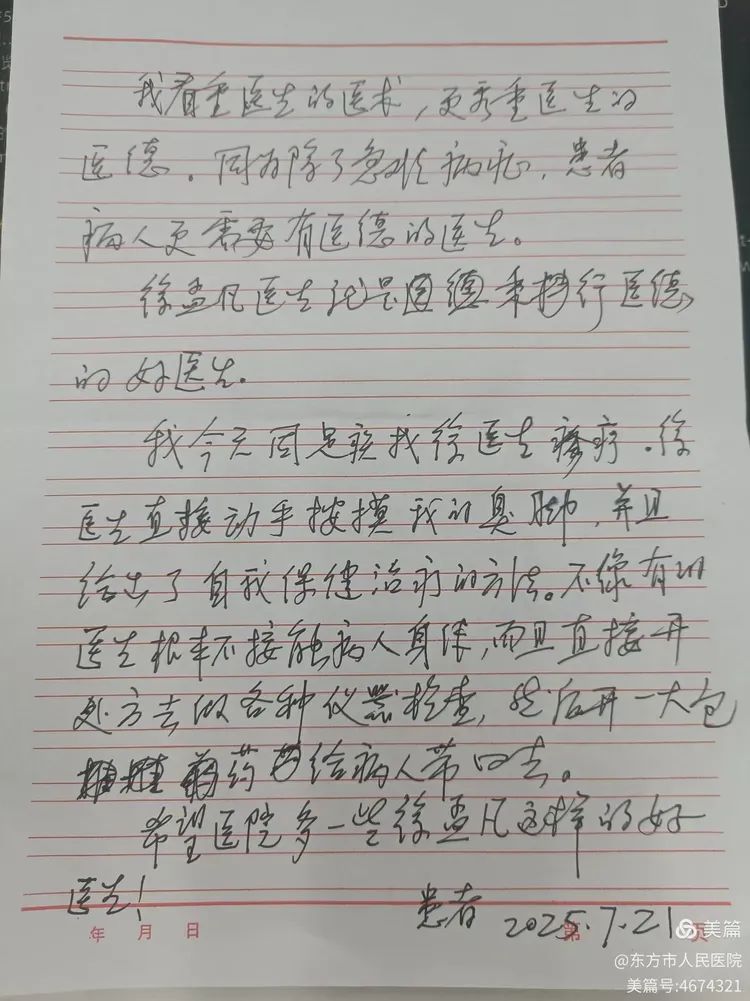 我看重医生的医术，更看重医生的
医德。因为除了急性病症，患者
病人更需要有医德的医生。
徐孟凡医生就是秉持行医德
的好医生。
我今天因足疾找徐医生疹疗．徐
医生直接动手按摸我的臭脚，并且
给出了自我保健治疗的方法。不像有的
医生根本不接触病人身体，而且直接开
处方去做各种仪器检查，然后开一大包
药给病人带回去。
希望医院多一些徐孟凡这样的好
医生！
患者 2025.7.21
年 月 日 第 页
美篇
@东方市人民医院
美篇号:4674321